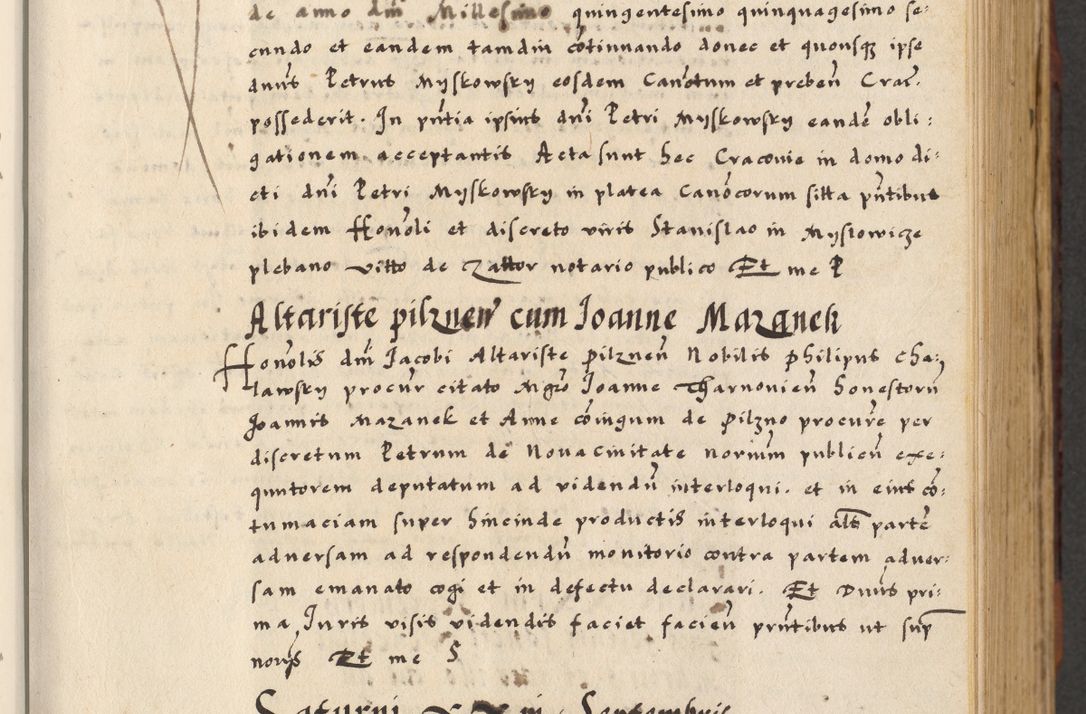 de anno dm̄ Millesimo quingentesimo quinquagesimo se:
cundo et eandem tamdiu cōtinuando donec et quousqȝ ipse
dnūs Petrus Myskowsky eosdem Canōtum et prebeñ Crac̄.
possederit. In pn̄tia ipsius dnī Petri Myskowsky eandē obli:
gationem acceptantis Acta sunt hec Cracovie in domo di:
cti dnī Petri Myskowsky in platea Canōcorum sitta pn̄tibus
ibidem Honōli et discreto viris Stanislao in Myslowicze
plebano Vitto de Zattor notario publico Et me P
Altariste pilzneñ cum Joanne Mazanek
Honōlis dm̄ Jacobi Altariste Pilzneñ Nobilis Philipus Cha:
lawsky procūr citato Mgrō Joanne Tharnovieñ honestorū
Joannis Mazanek et Anne cōiugum de Pilzno procurē per
discretum Petrum de Nova civitate noriūm publicū exe:
quutorem deputatum ad videndū interloqui. et in eius cō:
tumaciam super hincinde productis interloqui alt̄s partē
adversam ad respondendū monitorio contra partem adver:
sam emanato cogi et in defectu declarari. Et Dnūs pri:
ma Juris visis videndis faciet facieñ prn̄tibus ut sup̄
noriis Et me S
Saturni XX Septembris